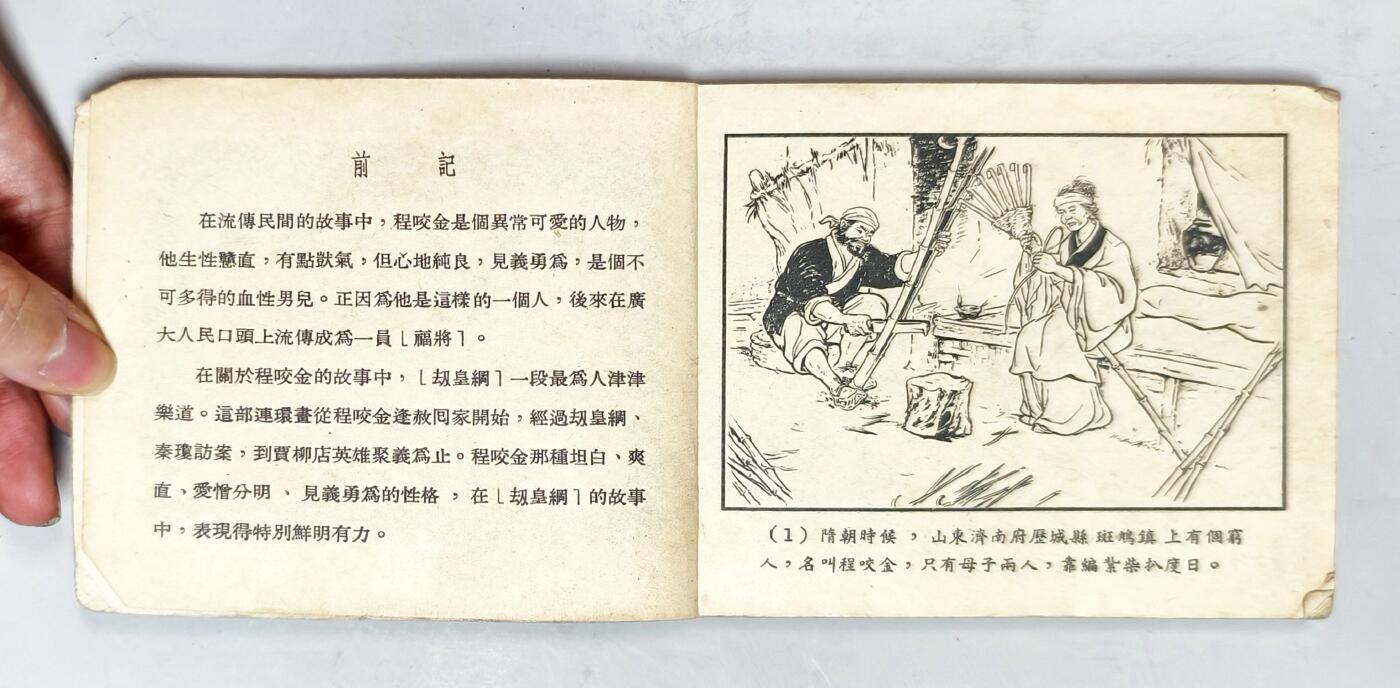 前　記
在流傳民間的故事中，程咬金是個異常可愛的人物，
他生性戇直，有點獃氣，但心地純良，見義勇爲，是個不
可多得的血性男兒。正因爲他是這樣的一個人，後來在廣
大人民口頭上流傳成爲一員﹝福將﹞。
在關於程咬金的故事中，﹝刼皇綱﹞一段最爲人津津
樂道。這部連環畫從程咬金逢赦囘家開始，經過刼皇綱、
秦瓊訪案，到賈柳店英雄聚義爲止。程咬金那種坦白、爽
直、愛憎分明、見義勇爲的性格，在﹝刼皇綱﹞的故事
中，表現得特別鮮明有力。
(1) 隋朝時候，山東濟南府歷城縣斑鳩鎮上有個窮
人，名叫程咬金，只有母子兩人，靠編紮柴扒度日。